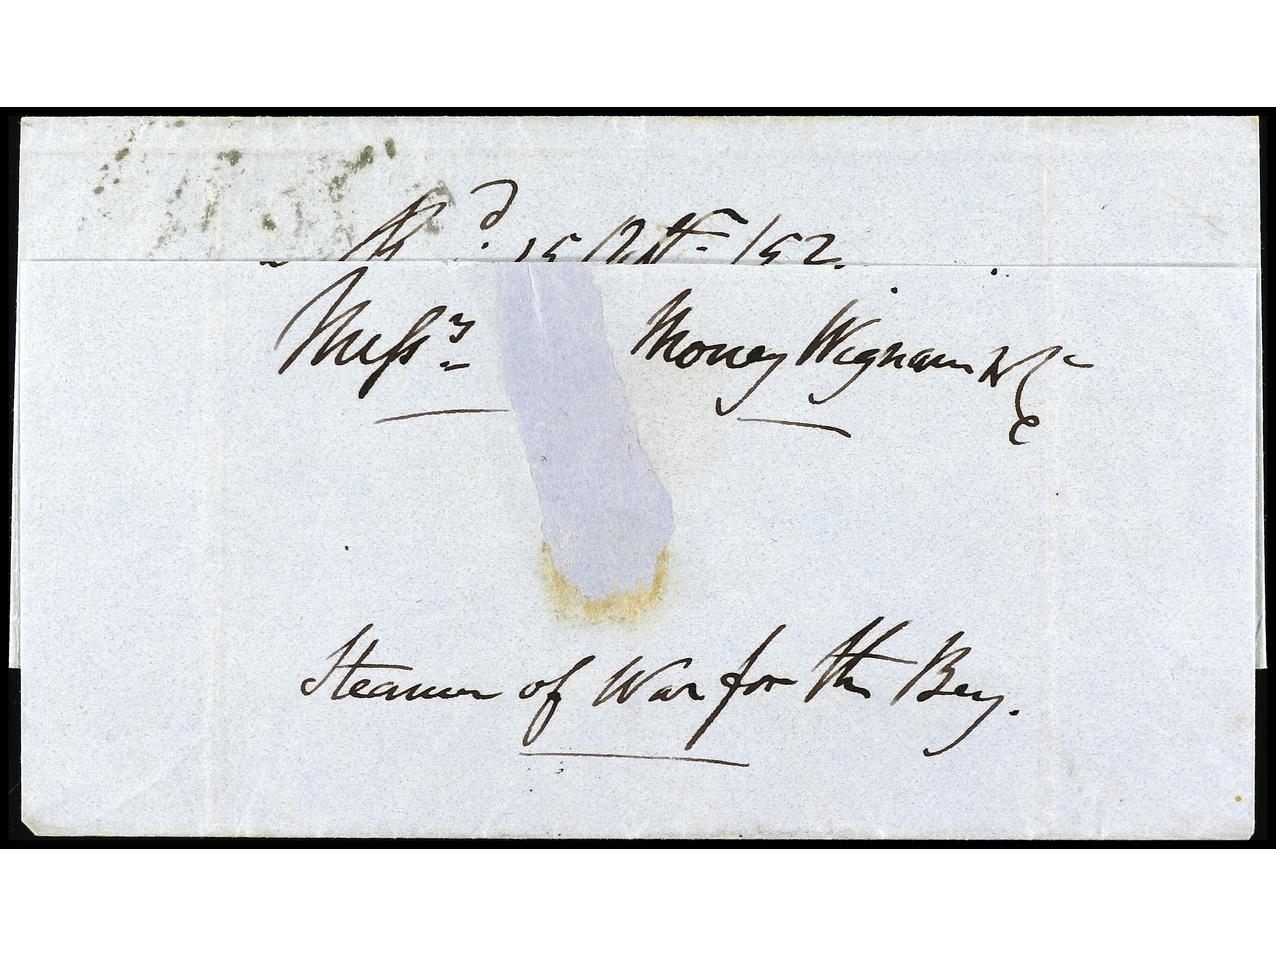 15 Octr. /52.
Messrs. Money Wigram & Co
Steamer of War for the Bey.